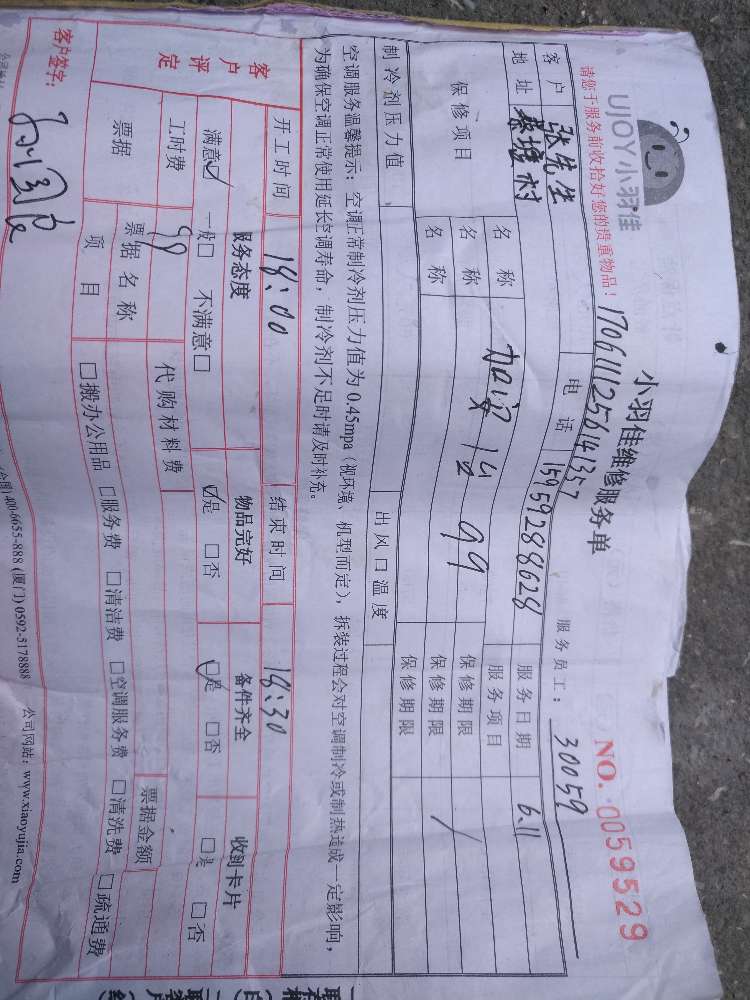 UJOY小羽佳
小羽佳维修服务单
NO. 0059529
请您于服务前收拾好您的贵重物品！
1706111256141357
服务员工：30059
客户 张先生 电话 15959288628 服务日期 6.11
地址 蔡塘村 服务项目
保修项目 名称 保修期限
名称 99 保修期限 /
名称 保修期限
制冷剂压力值 出风口温度
空调服务温馨提示：空调正常制冷剂压力值为0.45mpa（视环境、机型而定），拆装过程会对空调制冷或制热造成一定影响，
为确保空调正常使用延长空调寿命，制冷剂不足时请及时补充。
开工时间 18:00 结束时间 18:30
客户评定 服务态度 物品完好 备件齐全 收到卡片
满意☑ 一般□ 不满意□ ☑是 □否 ☑是 □否 □是 □否
工时费 99 代购材料费
票据 票据名称 票据金额
项目 □搬办公用品 □服务费 □清洁费 □空调服务费 □清洗费 □疏通费
客户签字：
(全国) 400-6655-888 (厦门) 0592-5178888 公司网站：www.xiaoyujia.com